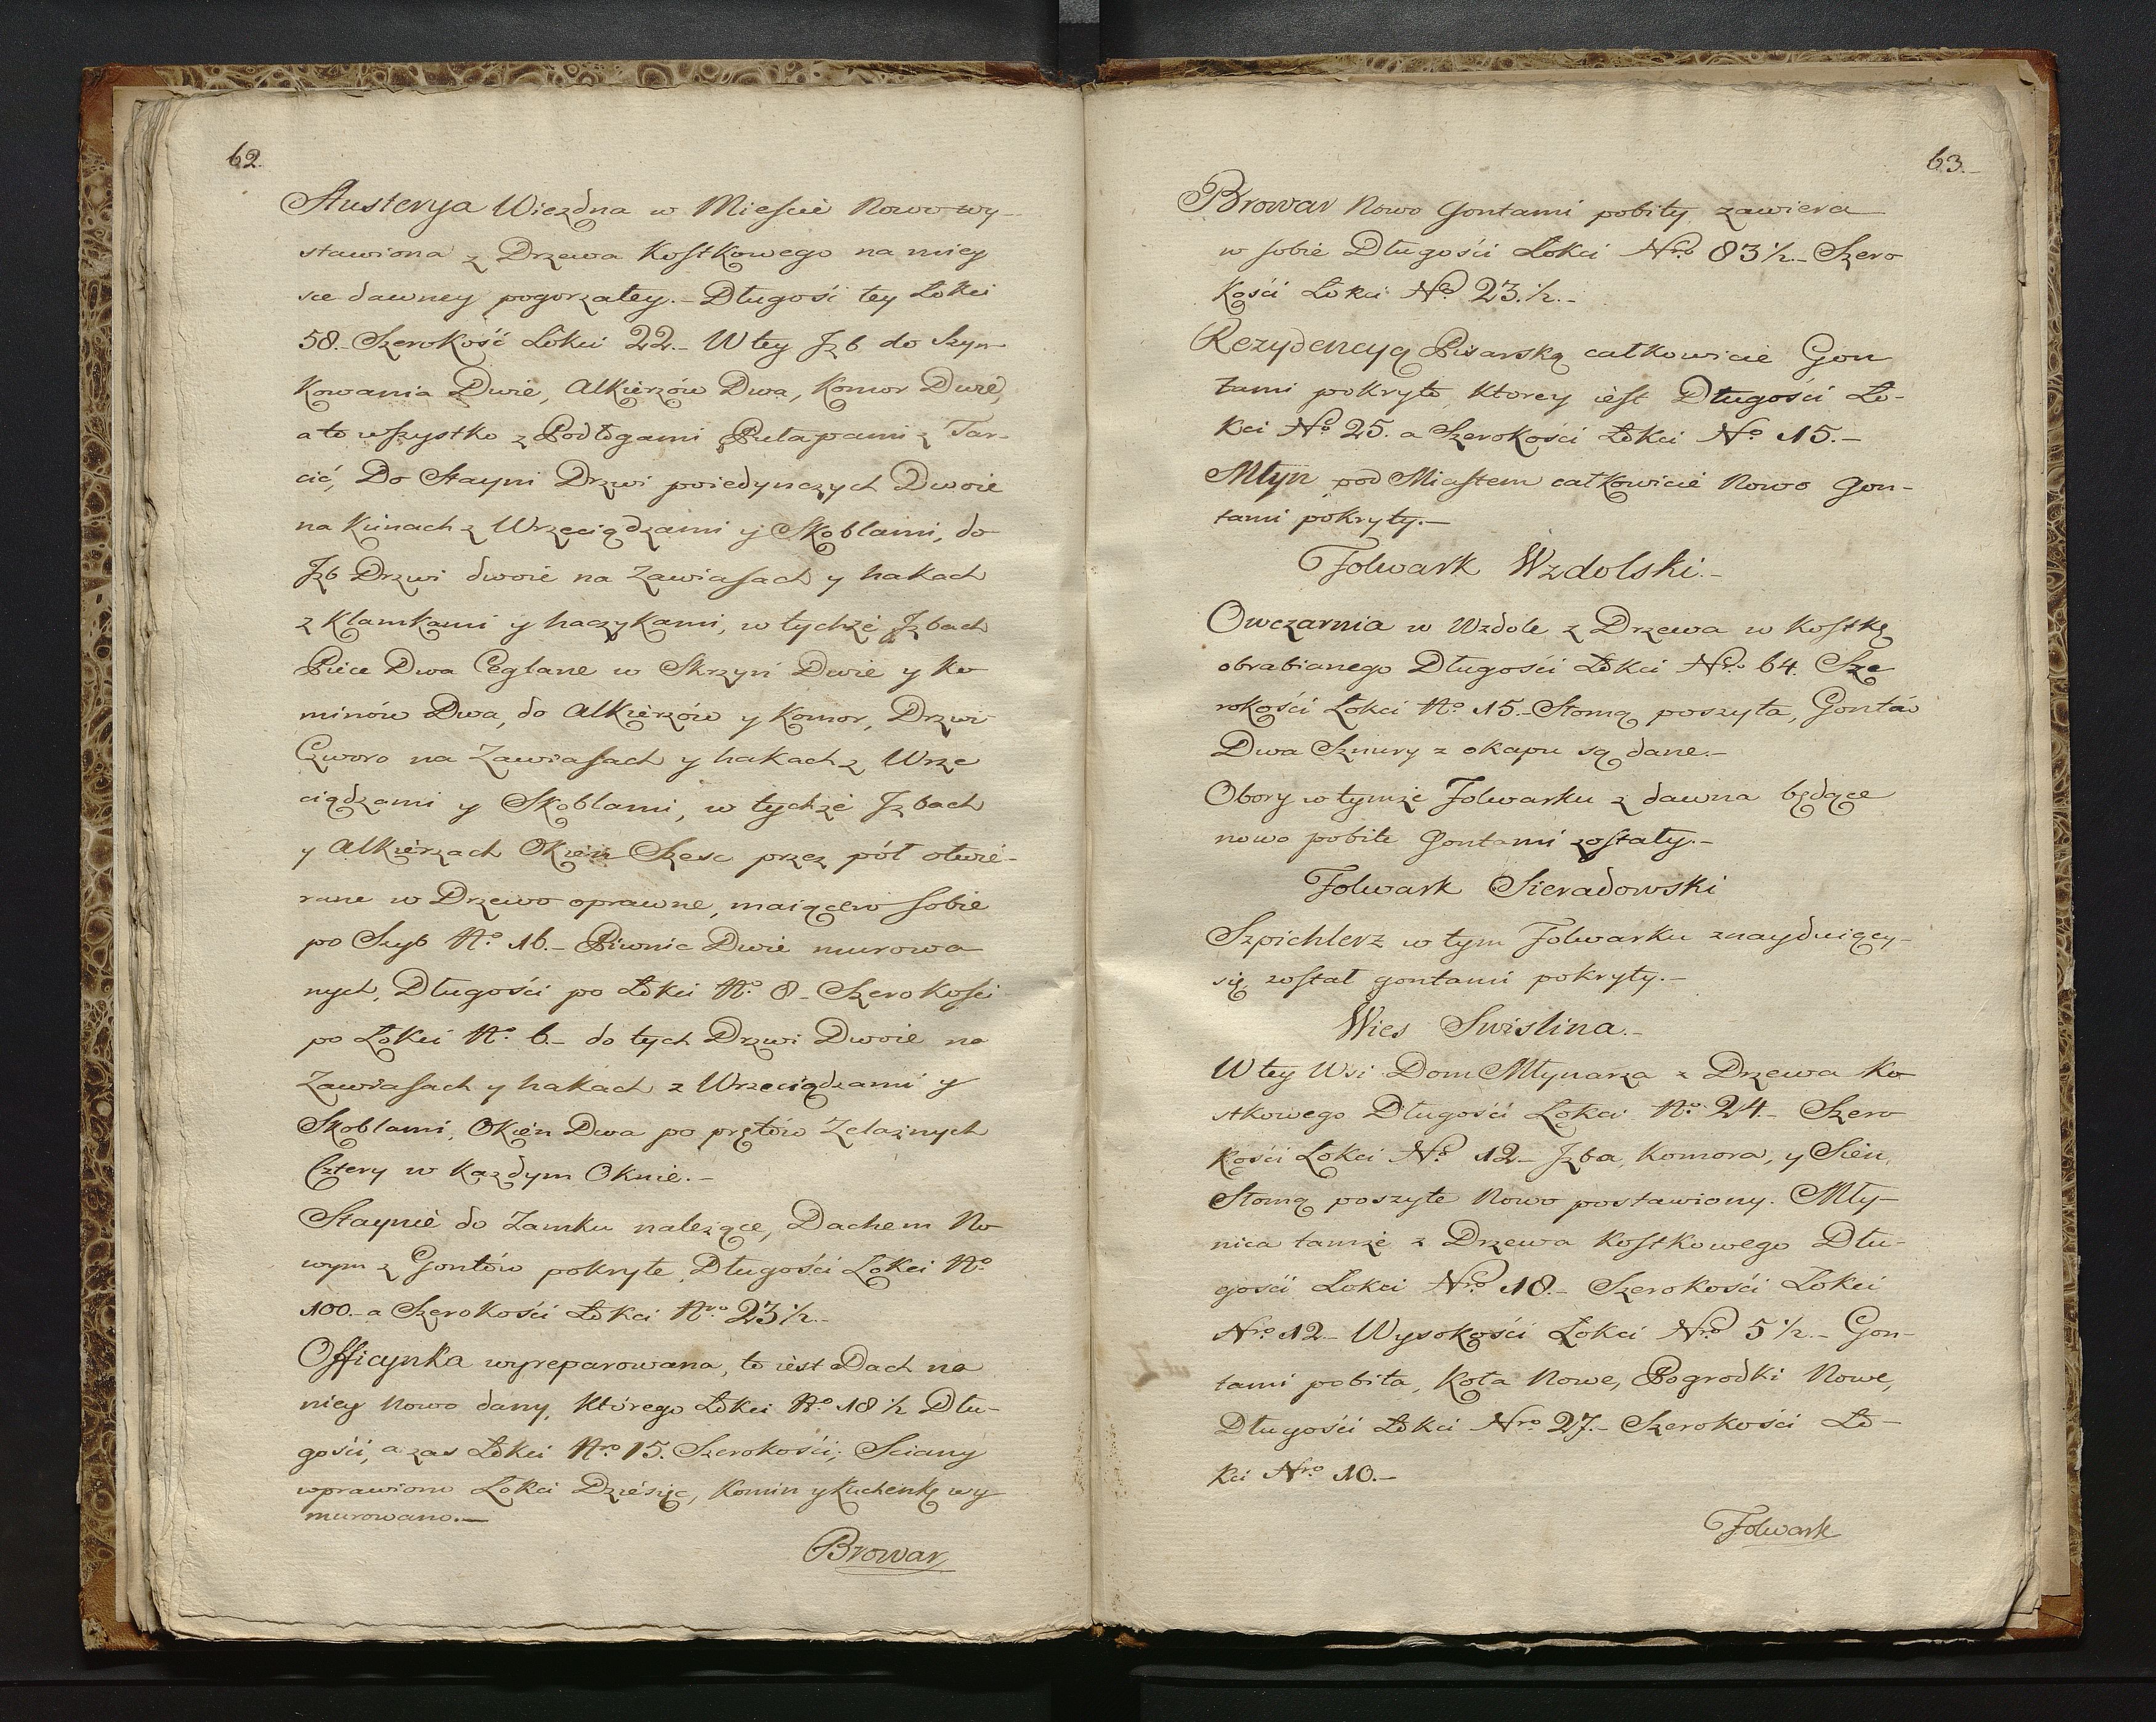 62.
Austerya Wiezdna w Mieście Nowo wy-
stawiona z Drzewa Kostkowego na miey
sce dawney pogorzałey.- Długość tey Łokci
58.- Szerokość Łokci 22.- W tey Jzb do Szyn
Kowania Dwie, Alkierzów Dwa, Komor Dwie,
a to wszystko z Podłogami Pułapami z Tar-
cić, Do Stayni Drzwi poiedynczych Dwoie
na Kunach z Wrzeciądzami y Skoblami, do
Jzb Drzwi dwoie na Zawiasach y hakach
z Klamkami y haczykami, w tychże Jzbach
Piece Dwa Ceglane w Skrzyń Dwie y Ko
minów Dwa, do Alkierzów y Komor, Drzwi
Czworo na Zawiasach y hakach z Wrze
ciądzami y Skoblami, w tychże Jzbach
y Alkierzach Okien Szesc przez pół otwie-
rane w Drzewo oprawne, maiące w sobie
po Szyb No. 16.- Piwnic Dwie murowa
nych, Długości po Łokci No. 8.- Szerokości
po Łokci No. 6.- do tych Drzwi Dwoie na
Zawiasach y hakach z Wrzeciądzami y
Skoblami, Okien Dwa po prętów Żelaznych
Cztery w każdym Oknie.-
Staynie do Zamku należące, Dachem No
wym z Gontów pokryte, Długości Łokci No.
100.- a Szerokości Łokci Nro. 23 1/2.-
Officynka wyreparowana, to iest Dach na
niey nowo dany, którego Łokci No. 18 1/2 Dłu-
gości, a zas Łokci Nro. 15. Szerokości, Sciany
wprawiono Łokci Dziesięc, Komin y Kuchenkę wy
murowano.-
Browar
63.-
Browar Nowo Gontami pobity, zawiera
w sobie Długości Łokci Nro. 83 1/2.- Szero
kości Łokci No. 23. 1/2.-
Rezydencyą Pisarską całkowicie Gon
tami pokryto, Ktorey iest Długości Ło-
kci No. 25. a Szerokości Łokci No. 15.-
Młyn pod Miastem całkowicie Nowo Gon-
tami pokryty.-
Folwark Wzdolski.-
Owczarnia w Wzdole z Drzewa w Kostkę
obrabianego Długości Łokci Nro. 64. Sze
rokości Łokci No. 15.- Słomą poszyta, Gontów
Dwa Sznury z okapu są dane.-
Obory w tymże Folwarku z dawna będące
nowo pobite Gontami zostały.-
Folwark Sieradowski
Szpichlerz w tym Folwarku znayduiący-
się, został gontami pokryty.-
Wies Swislina.-
W tey Wsi Dom Młynarza z Drzewa Ko
stkowego Długości Łokci No. 24.- Szero
kości Łokci No. 12.- Jzba, Komora, y Sień,
Słomą poszyte Nowo postawiony. Mły-
nica tamże z Drzewa Kostkowego Dłu-
gości Łokci Nro. 18.- Szerokości Łokci
Nro. 12.- Wysokości Łokci Nro. 5 1/2.- Gon-
tami pobita, Koła Nowe, Pogrodki Nowe,
Długości Łokci Nro. 27.- Szerokości Ło-
kci Nro. 10.-
Folwark